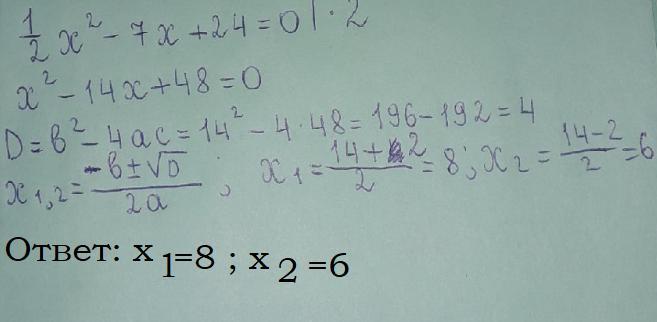 1/2 x² - 7x + 24 = 0 | · 2
x² - 14x + 48 = 0
D = b² - 4ac = 14² - 4 · 48 = 196 - 192 = 4
x₁,₂ = -b ± √D / 2a ; x₁ = 14 + 2 / 2 = 8 ; x₂ = 14 - 2 / 2 = 6
Ответ: x 1=8 ; x 2 =6